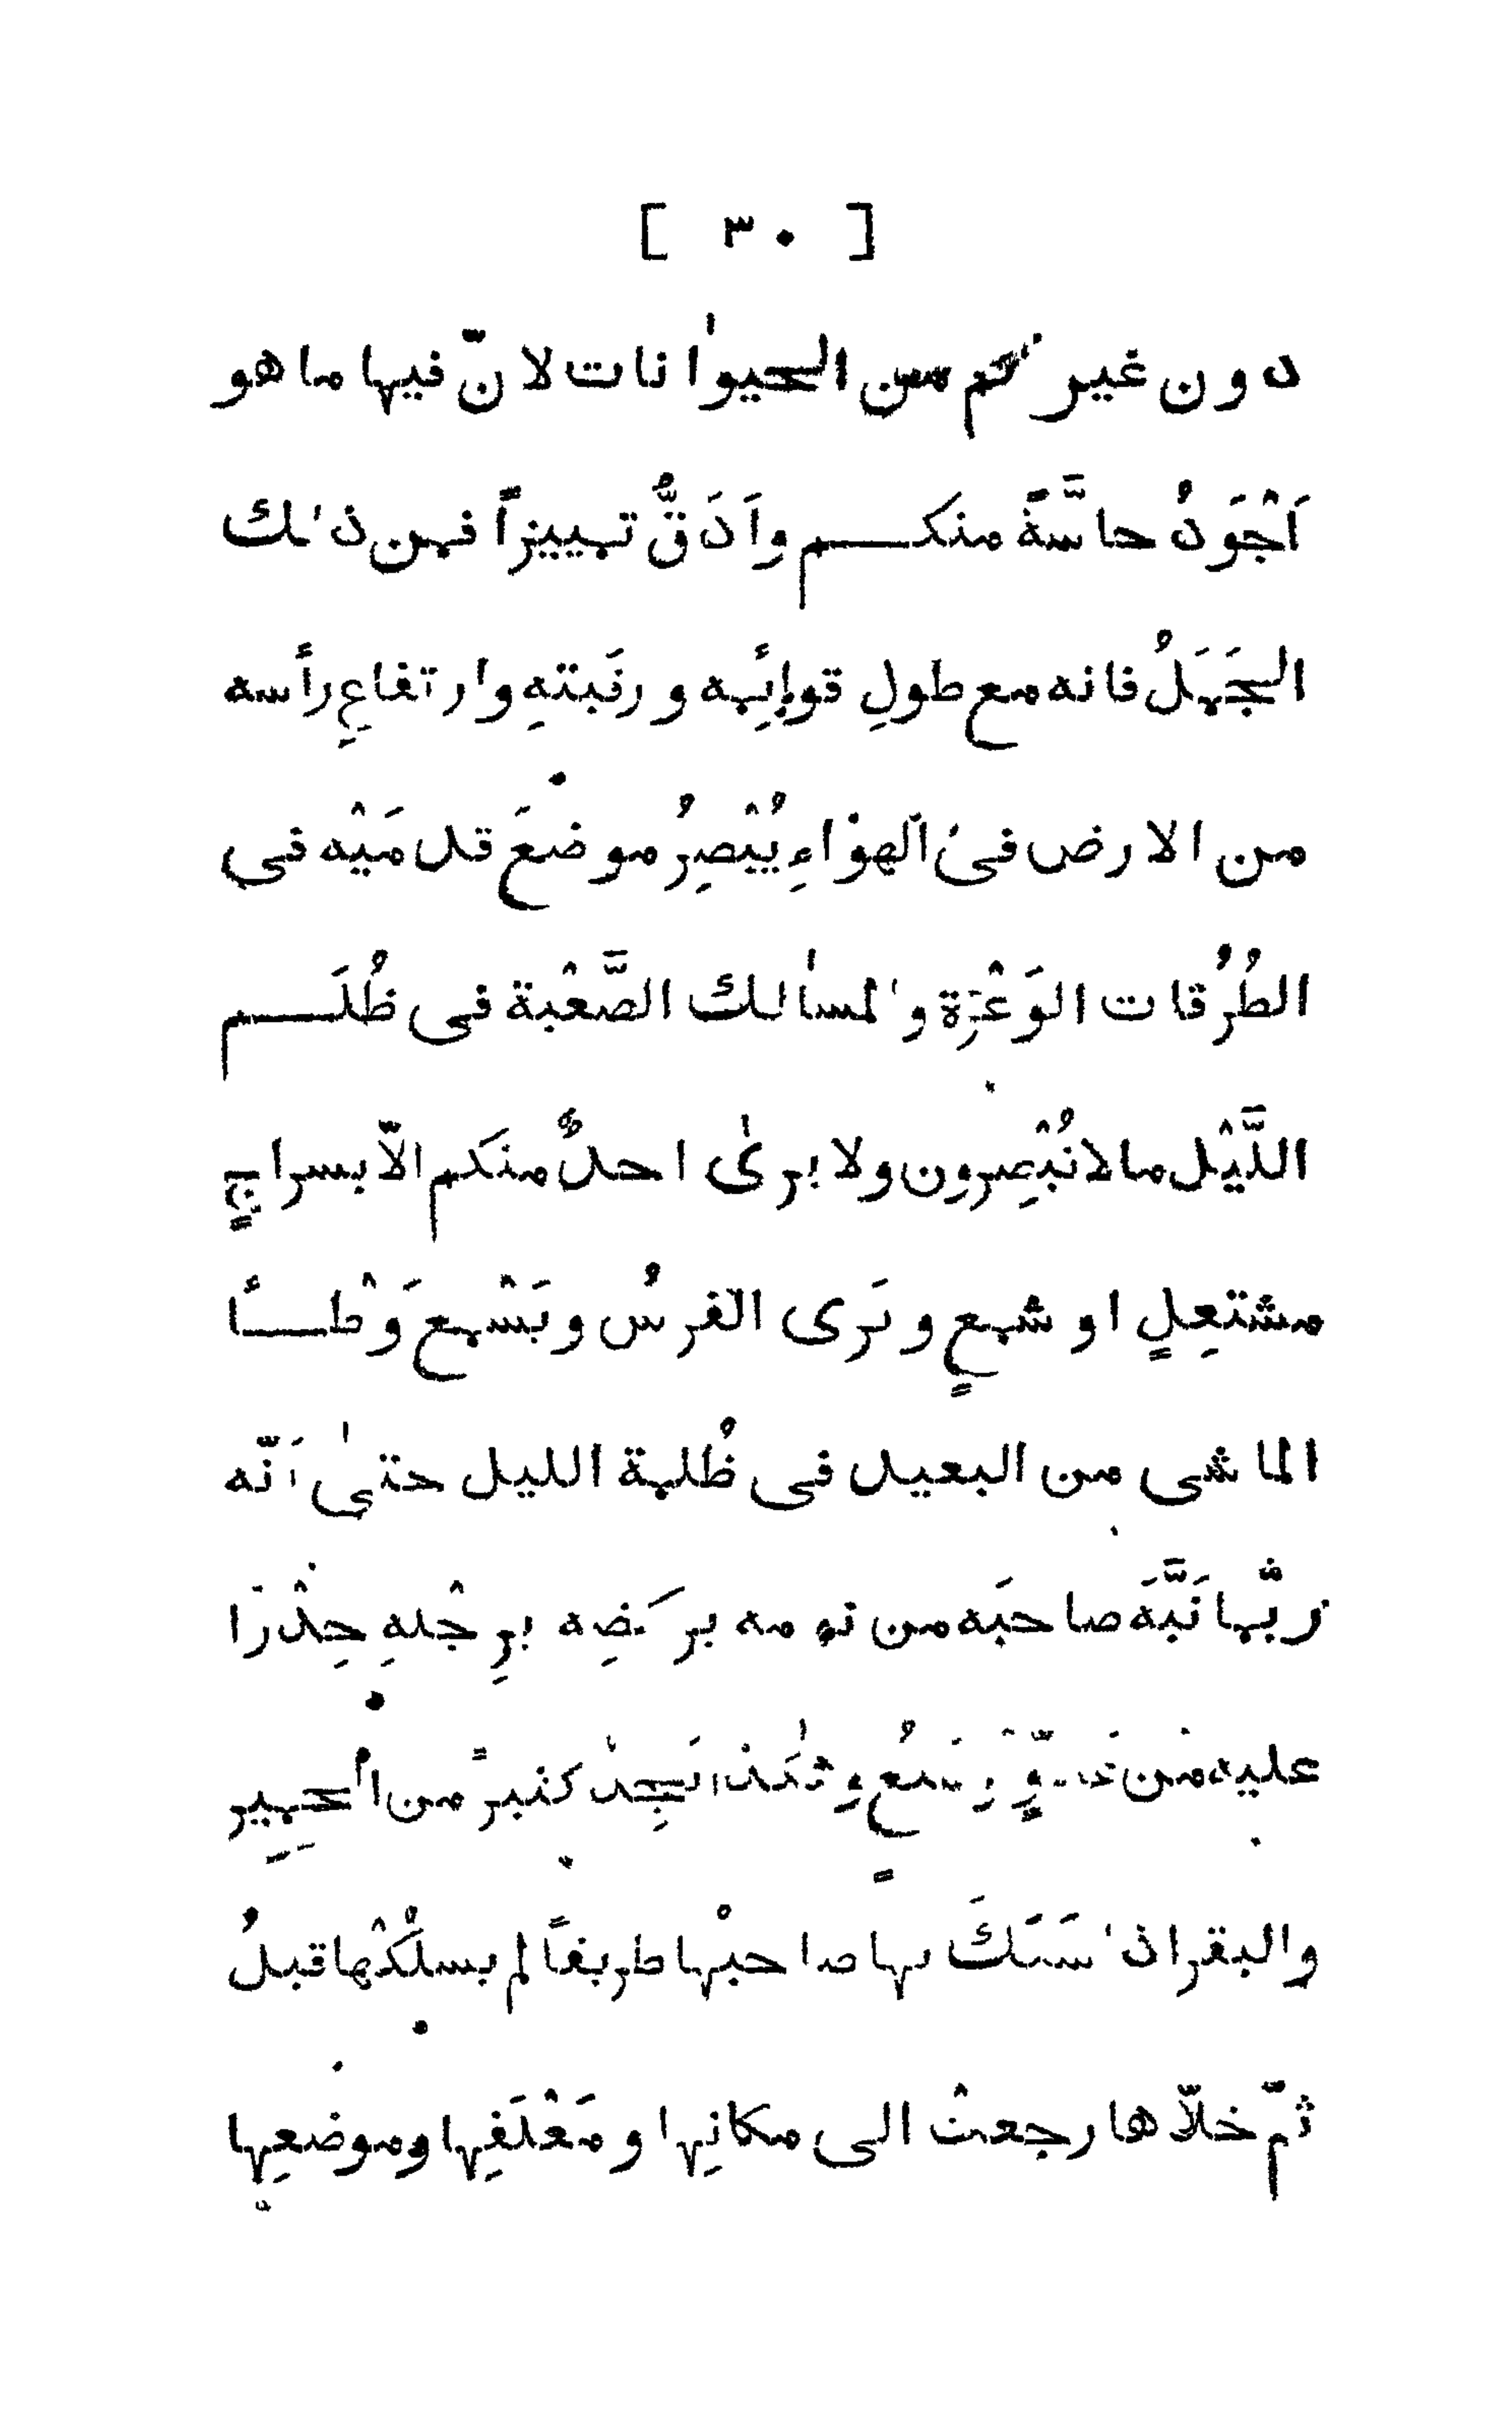 [ ٣٠ ]
دون غيركم من الحيوٰانات لانّ فيها ما هو
اَجْوَدُ حاسَّةً منكم واَدَقُّ تمييزاً فمن ذٰلك
الجَمَلُ فانه مع طولِ قوائِمه ورقَبتهِ وارتفاعِ رأسه
من الارض فى الهوٰاءِ يُبْصِرُ موضعَ قدمَيْه فى
الطُرُقات الوَعْرَة والمسٰالك الصَّعْبة فى ظُلَم
اللَّيْل ما لا تُبْصِرون ولا يرىٰ احدٌ منكم الّا بسراجٍ
مشتعِلٍ او شمعٍ و تَرى الفرسُ ويَسْمع وَطْأ
الماشى من البعيد فى ظُلمة الليل حتىٰ اَنّه
ربّما نَبَّهَ صاحبَه من نومه بركضِه برِجْلهِ حِذْرًا
عليه من عدوٍّ وسَبُعٍ وكذٰا نجِدُ كثيرً من الحمِير
والبقر اذا سَلَكَ بها صاحبُها طريقاً لم يسلُكْها قبلُ
ثمّ خلّاها رجعتْ الى مكانِها ومَعْلَفِها وموضعِها